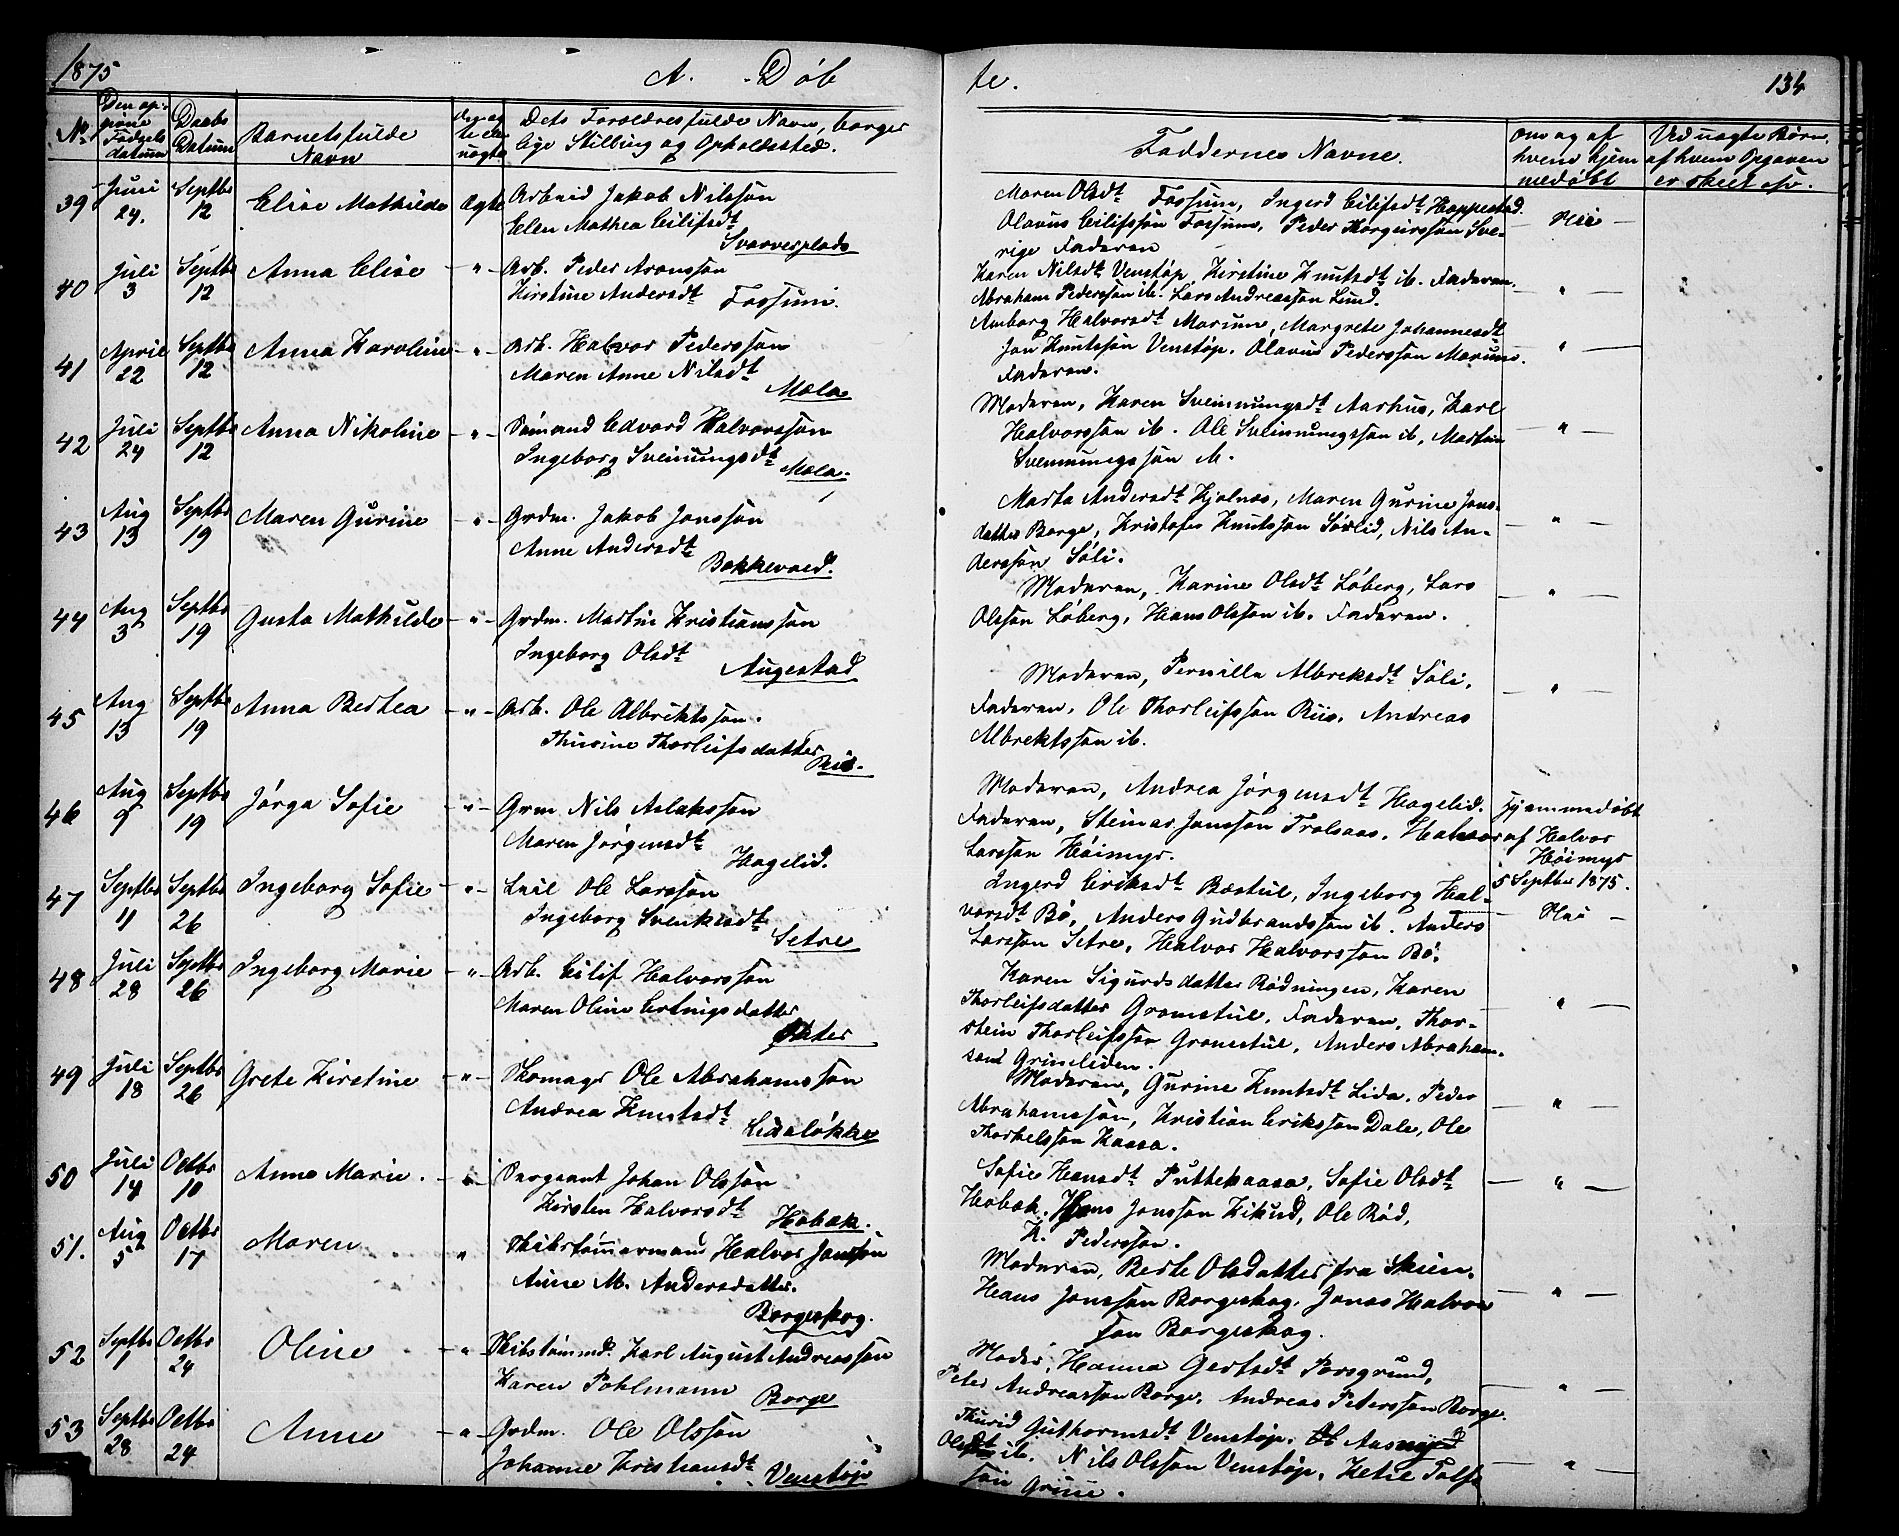 1875
A. Døb
te.
134
No
Den op-
givne
Fødsels
datum
Daabs
Datum
Barnets fulde
Navn
Dets Forældres fulde Navn, borger
lige Stilling og Opholdssted.
Faddernes Navne.
om og af
hvem hjem
medøbt
Ved uægte Børn,
af hvem Opgaven
er skeet osv.
39 Juni 24. Septbr 12 Elise Mathilde ægte Arbeid Jakob Nilssøn
Elen Mathea Eilifsdt
Svarverplads
Maren Olsdt Fossum, Ingerd Eilifsdt Hoppestad.
Olavus Eilifssøn Fossum, Peder Thorgurssøn Sve-
rige Faderen
Nei —
40 Juli 3 Septbr 12 Anna Elise — " — Arb. Peder Aronssøn
Kirstine Andersdt Fossum.
Karen Nilsdt Venstøp, Kirstine Knutsdt ib. Faderen.
Abraham Pederssøn ib. Lars Andreassøn Lund.
— " —
41 April 22 Septbr 12 Anna Karoline — " — Arb. Halvor Pederssøn
Maren Anne Nilsdt
Mæla
Amborg Halvorsdt Marum, Margrete Johannesdt
Jon Knutssøn Venstøp. Olavus Pederssøn Marum.
Faderen.
— " —
42 Juli 24 Septbr 12 Anna Nikoline — " — Sømand Edvard Halvorssøn
Ingeborg Sveinungsdt
Mæla.
Moderen, Karen Sveinnungsdt Aarhus, Karl
Halvorssøn ib. Ole Sveinnungssøn ib, Martin
Svennungssøn M.
— " —
43 Aug 13 Septbr 19 Maren Gurine — " — Grdm. Jakob Jonssøn
Anne Andersdt
Bakkevold.
Marta Andersdt Kjølnæs, Maren Gurine Jons-
datter Borge, Kristofer Knutssøn Sørlid, Nils An-
derssøn Søli.
— " —
44 Aug 3 Septbr 19 Gusta Mathilde — " — Grdm. Martin Kristianssøn
Ingeborg Olsdt
Augestad
Moderen, Karine Olsdt Løberg, Lars
Olssøn Løberg, Hans Olssøn ib. Faderen.
— " —
45 Aug 13 Septbr 19 Anna Berthea — " — Arb. Ole Albriktssøn.
Thurine Thorleifsdatter
Riis.
Moderen, Pernille Albreksdt Søli.
Faderen, Ole Thorleifssøn Riis. Andreas
Albrektssøn ib.
— " —
46 Aug 9 Septbr 19 Jørga Sofie — " — Grm Nils Aslakssøn
Maren Jørgensdt
Hagelid.
Moderen, Andrea Jørgensdt Hagelid.
Faderen, Steinar Janssøn Trolsaas. Halvor
Larssøn Høimyr.
Hjemmedøbt
af Halvor
Høimyr
5 Septber 1875.
47 Septbr 11 Septbr 26 Ingeborg Sofie — " — Leil Ole Larssøn
Ingeborg Svenkesdt
Setre
Ingerd Eriksdt Bæstul, Ingeborg Hal-
vorsdt Bø, Anders Gudbrandssøn ib. Anders
Larssøn Setre, Halvor Halvorssøn Bø.
— Nei —
48 Juli 28 Septbr 26 Ingeborg Marie — " — Arb. Eilif Halvorssøn
Maren Oline Ertnigsdatter
Øster
Karen Sigurdsdatter Rødningen, Karen
Thorleifsdatter Gromstul. Faderen, Thor-
stein Thorleifssøn Gromstul, Anders Abraham-
søn Grimeliden.
— " —
49 Juli 18 Septbr 26 Grete Kirstine — " — Skomagr Ole Abrahamssøn
Andrea Knutsdt
Lidaløkke
Moderen, Gurine Knutsdt Lida. Peder
Abrahamssøn, Kristian Erikssøn Dale, Ole
Thorkelssøn Kaasa.
— " —
50 Juli 14 Octbr 10 Anne Marie. — " — Sergeant Johan Olssøn
Kirsten Halvorsdt
Hobæk.
Sofie Hansdt Puttekaasa, Sofie Olsdt
Hobæk. Hans Jonssøn Kikud, Ole Rød,
K. Pederssøn.
— " —
51. Aug 5 Octbr 17 Maren " Skibstømmermand Halvor Janssøn
Anne M. Andersdatter.
Borgeskog.
Moderen, Berte Olsdatter fra Skien.
Hans Jonssøn Borgeskog. Jonas Halvor
søn Borgeskog.
— " —
52 Septbr 1 Octbr 24 Oline — " — Skibstømmd. Karl August Andreassøn
Karen Pohlmann
Borge
Moder, Hanna Gertsdt Porsgrund,
Peter Andreassøn Borge. Andreas Peterssøn Borge.
— " —
53 Septbr 28 Octbr 24 Anne — " — Grdm. Ole Olssøn
Johanne Kristiansdt
Venstøp
Thurid Guthormsdt Venstøp. Aasmyr
Olsdt ib. Nils Olssøn Venstøp. Ketil Tolfs
søn Grine.
— " —